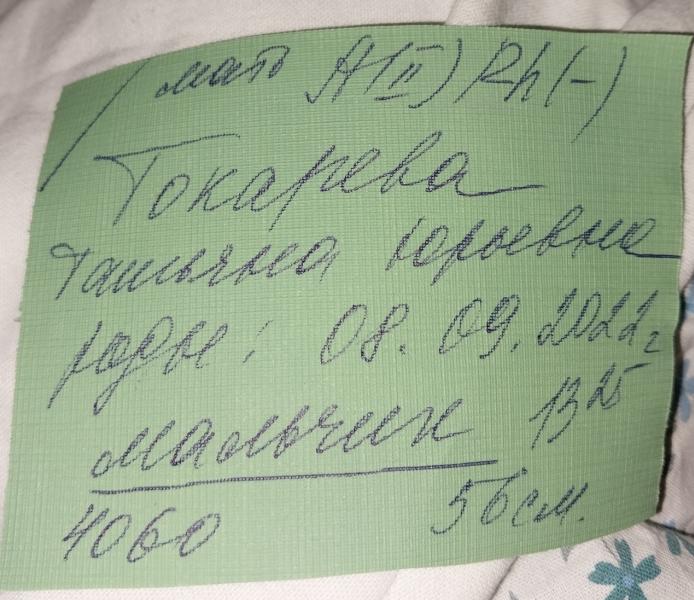 мать A(II) Rh(-)
Токарева
Татьяна Юрьевна
роды: 08.09.2022г
мальчик 13 25
4060 56 см.